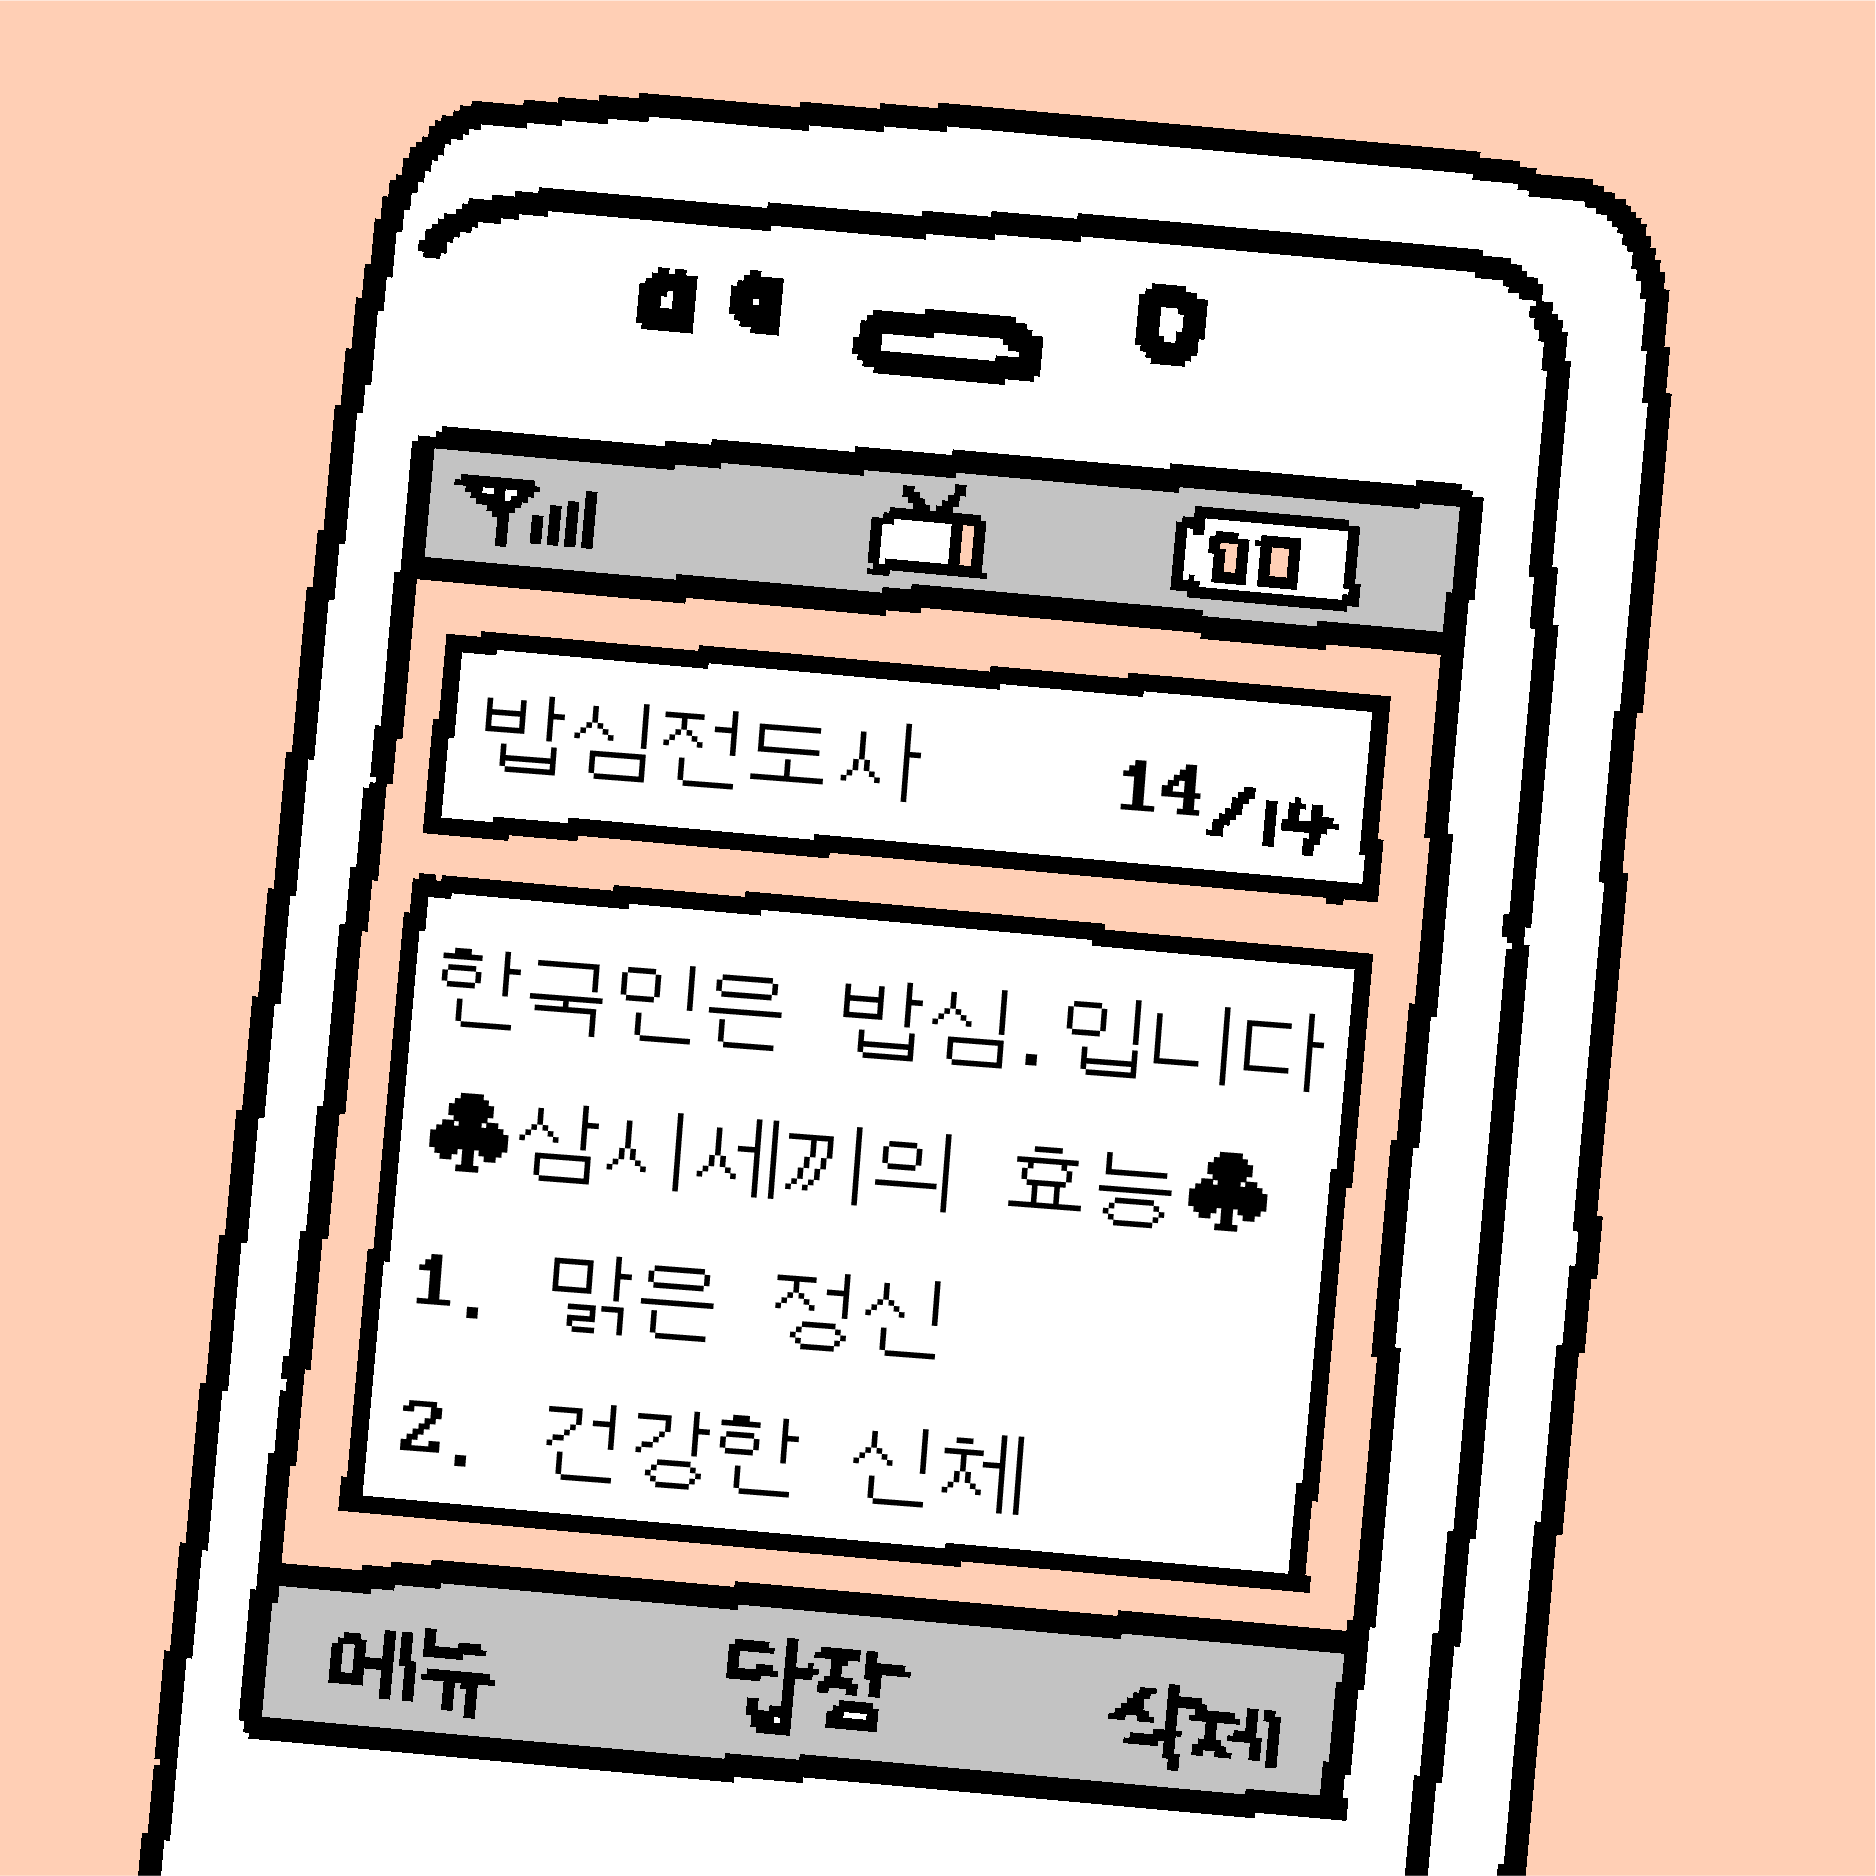 밥심전도사 14/14
한국인은 밥심.입니다
♣삼시세끼의 효능♣
1. 맑은 정신
2. 건강한 신체
메뉴 답장 삭제